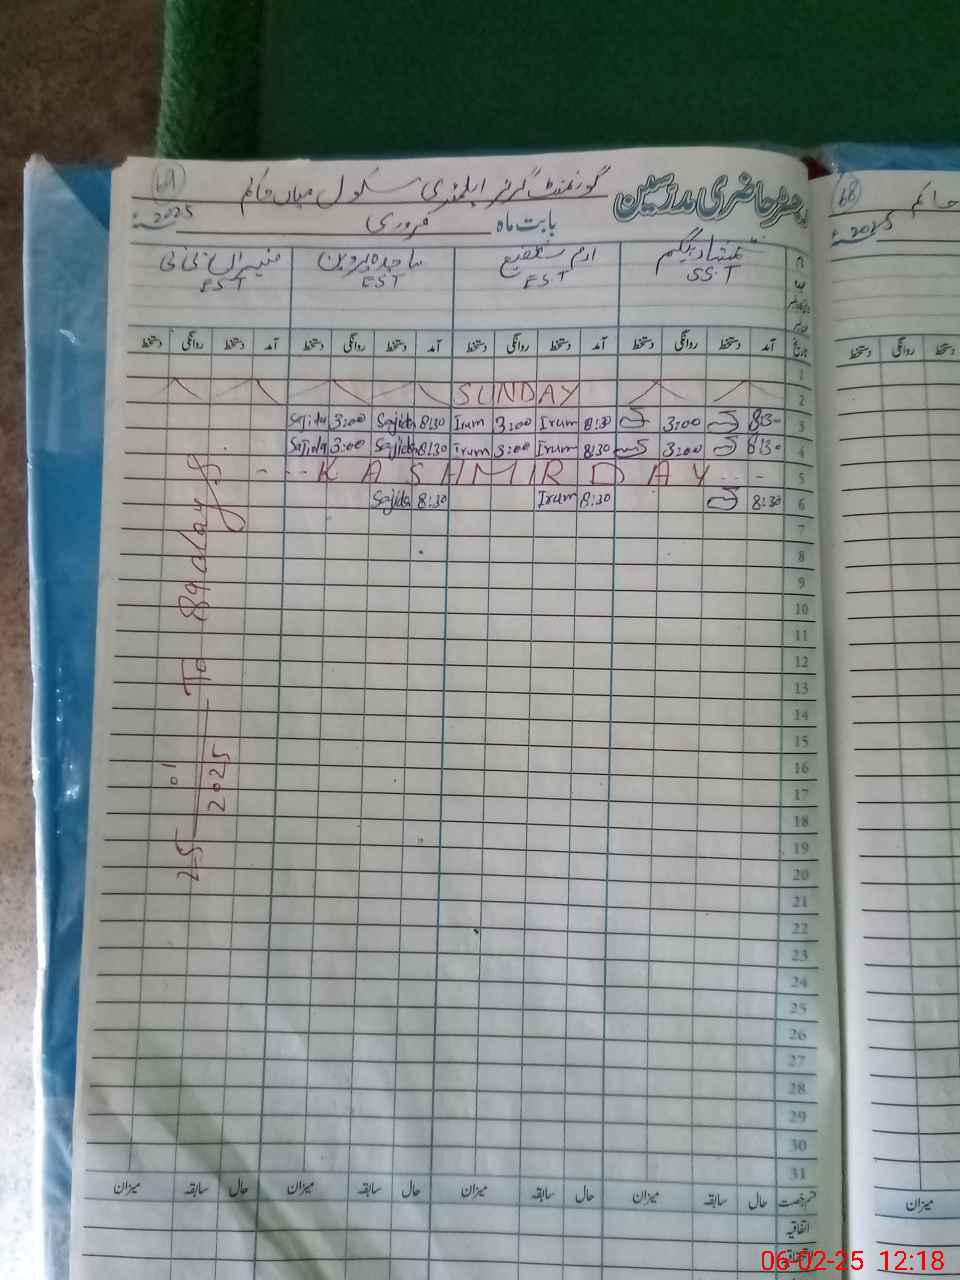 69
رجسٹر حاضری مدرسین گورنمنٹ گرلز ایلیمنٹری سکول میاں حاکم
بابت ماہ فروری 2025ء
شمشاد بیگم ارم شفیع ساجدہ پروین
SST EST EST EST
تاریخ آمد دستخط روانگی دستخط آمد دستخط روانگی دستخط آمد دستخط روانگی دستخط آمد دستخط روانگی دستخط
1
2 SUNDAY
3 8:30 3:00 8:30 Irum 3:00 Irum 8:30 Sajida 3:00 Sajida
4 8:30 3:00 8:30 Irum 3:00 Irum 8:30 Sajida 3:00 Sajida
5 KASHMIR DAY
6 8:30 8:30 Irum 8:30 Sajida
7
8
9
10
11
12
13
14
15
16
17
18
19
20
21
22
23
24
25
26
27
28
29
30
31
25 01 2025 To 89 days
قسم رخصت حال سابقہ میزان حال سابقہ میزان حال سابقہ میزان حال سابقہ میزان
اتفاقیہ
68
حاکم
2025ء
دستخط روانگی دستخط
میزان
06-02-25 12:18